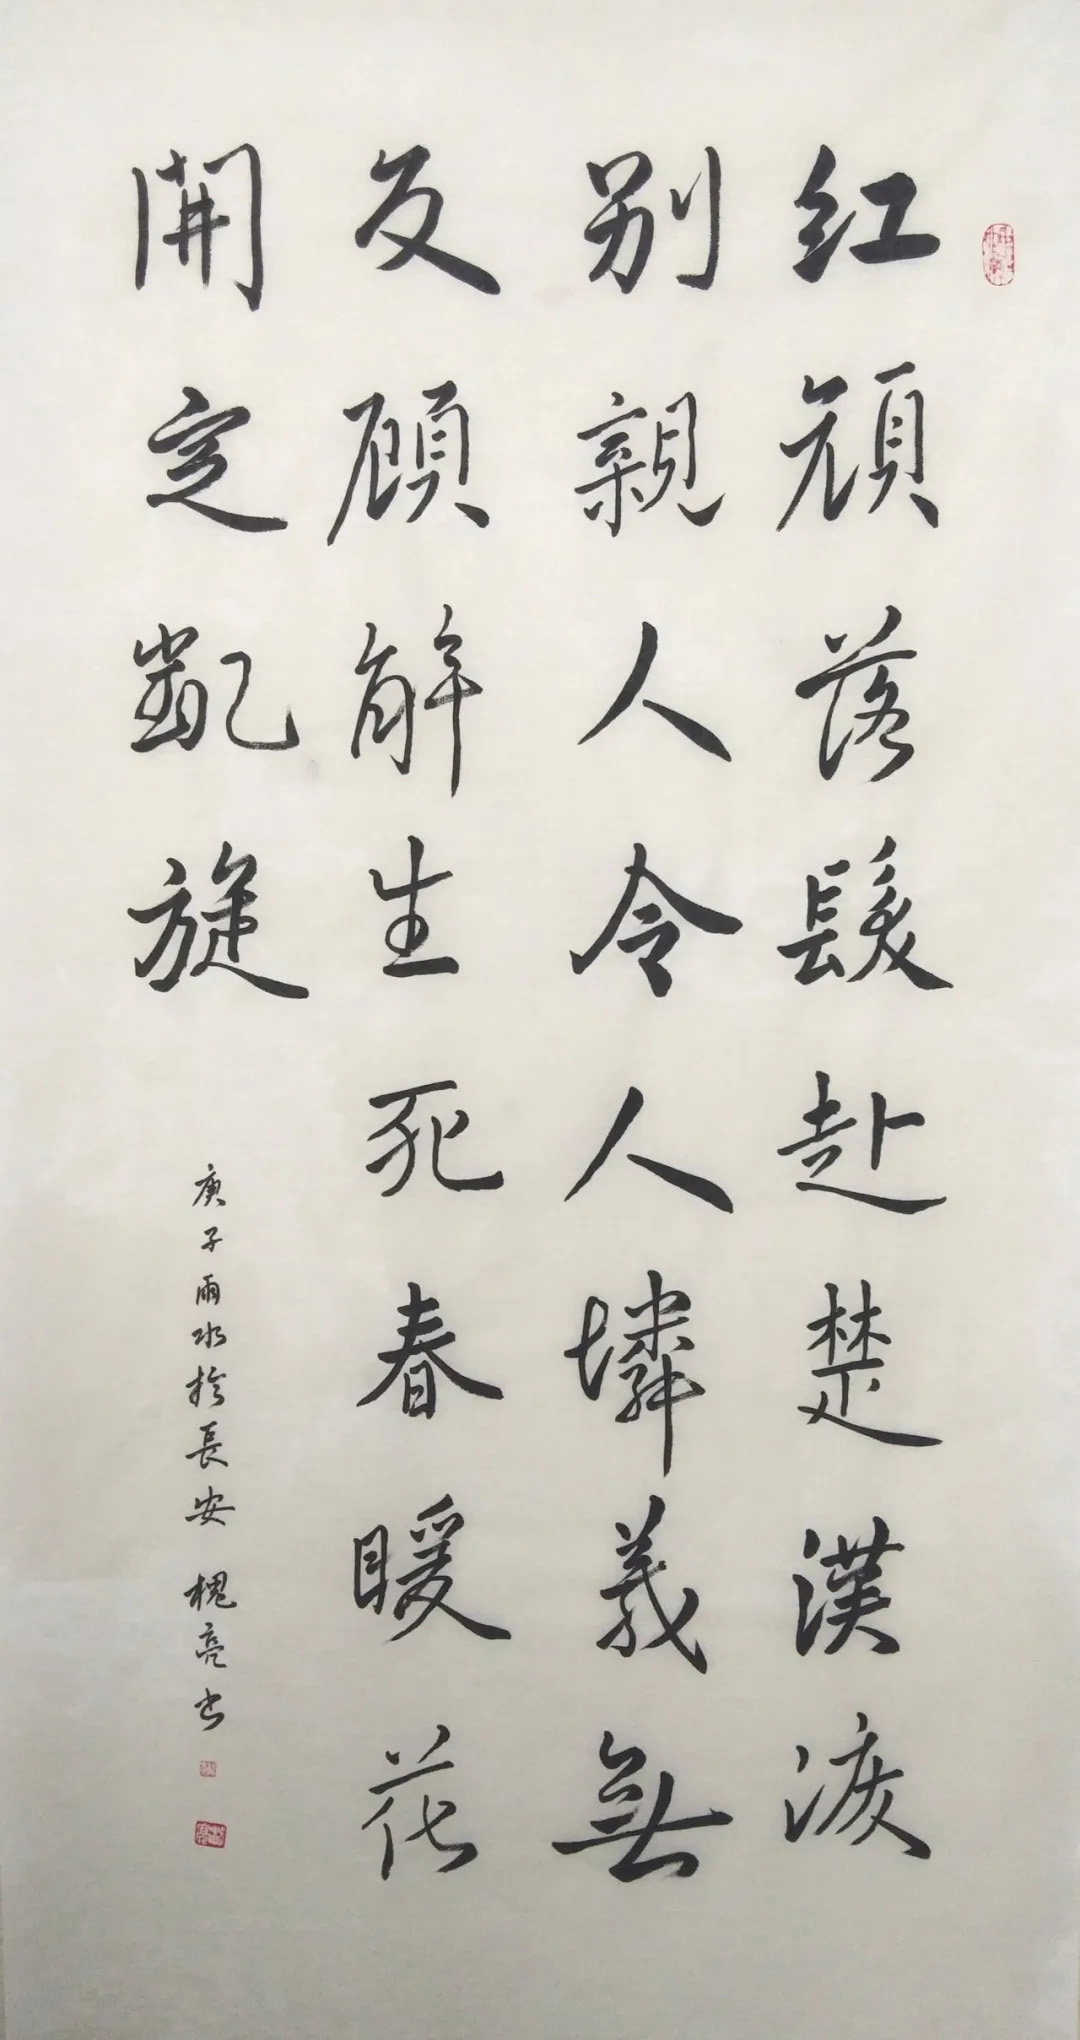 红顔落髮赴楚漢淚
别親人令人憐義無
反顧解生死春暖花
開定凱旋
庚子雨水於長安 槐亮书